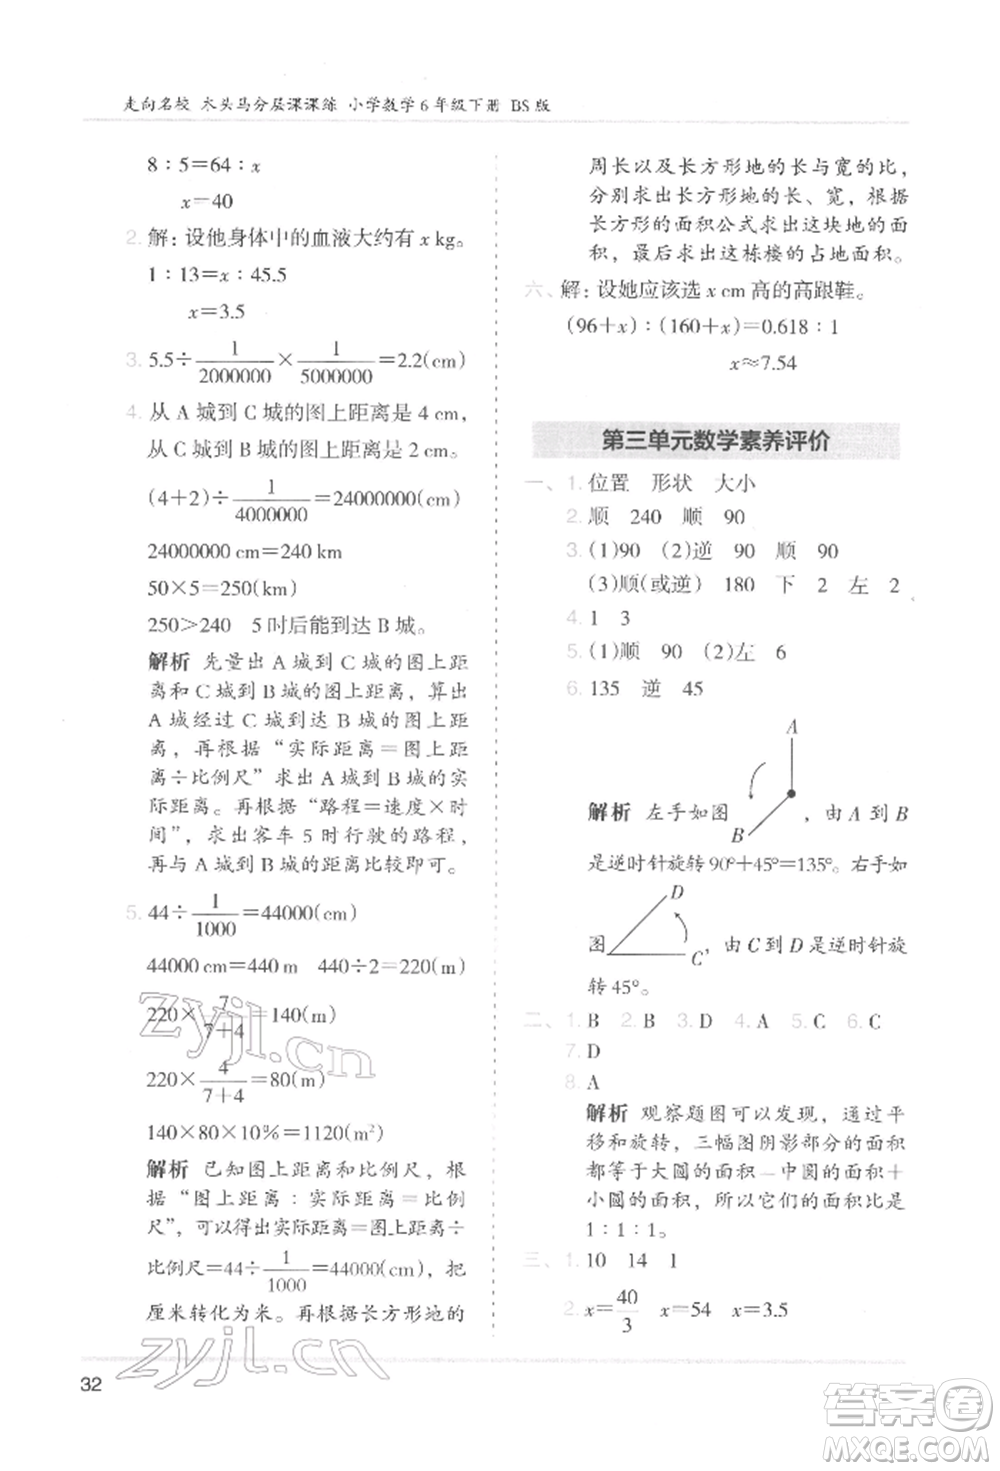 走向名校 木头马分层课课练 小学数学6年级下册 BS版
8：5＝64：x
x＝40
2. 解：设他身体中的血液大约有 x kg。
1：13＝x：45.5
x＝3.5
3. 5.5÷1/2000000×1/5000000＝2.2(cm)
4. 从 A 城到 C 城的图上距离是 4 cm，
从 C 城到 B 城的图上距离是 2 cm。
(4＋2)÷1/4000000＝24000000(cm)
24000000 cm＝240 km
50×5＝250(km)
250＞240 5 时后能到达 B 城。
解析 先量出 A 城到 C 城的图上距
离和 C 城到 B 城的图上距离，算出
A 城经过 C 城到达 B 城的图上距
离，再根据“实际距离＝图上距
离÷比例尺”求出 A 城到 B 城的实
际距离。再根据“路程＝速度×时
间”，求出客车 5 时行驶的路程，
再与 A 城到 B 城的距离比较即可。
5. 44÷1/1000＝44000(cm)
44000 cm＝440 m 440÷2＝220(m)
220×7/(7＋4)＝140(m)
220×4/(7＋4)＝80(m)
140×80×10%＝1120(m²)
解析 已知图上距离和比例尺，根
据“图上距离：实际距离＝比例
尺”，可以得出实际距离＝图上距离÷
比例尺＝44÷1/1000＝44000(cm)，把
厘米转化为米。再根据长方形地的
周长以及长方形地的长与宽的比，
分别求出长方形地的长、宽，根据
长方形的面积公式求出这块地的面
积，最后求出这栋楼的占地面积。
六、解：设她应该选 x cm 高的高跟鞋。
(96＋x)：(160＋x)＝0.618：1
x≈7.54
第三单元数学素养评价
一、1. 位置 形状 大小
2. 顺 240 顺 90
3. (1)90 (2)逆 90 顺 90
(3)顺(或逆) 180 下 2 左 2
4. 1 3
5. (1)顺 90 (2)左 6
6. 135 逆 45
A
B
解析 左手如图，由 A 到 B
是逆时针旋转 90°＋45°＝135°。右手如
D
C
图，由 C 到 D 是逆时针旋
转 45°。
二、1. B 2. B 3. D 4. A 5. C 6. C
7. D
8. A
解析 观察题图可以发现，通过平
移和旋转，三幅图阴影部分的面积
都等于大圆的面积－中圆的面积＋
小圆的面积，所以它们的面积比是
1：1：1。
三、1. 10 14 1
2. x＝40/3 x＝54 x＝3.5
32
zyjl.cn
zyjl.cn
答案圈
MXQE.COM